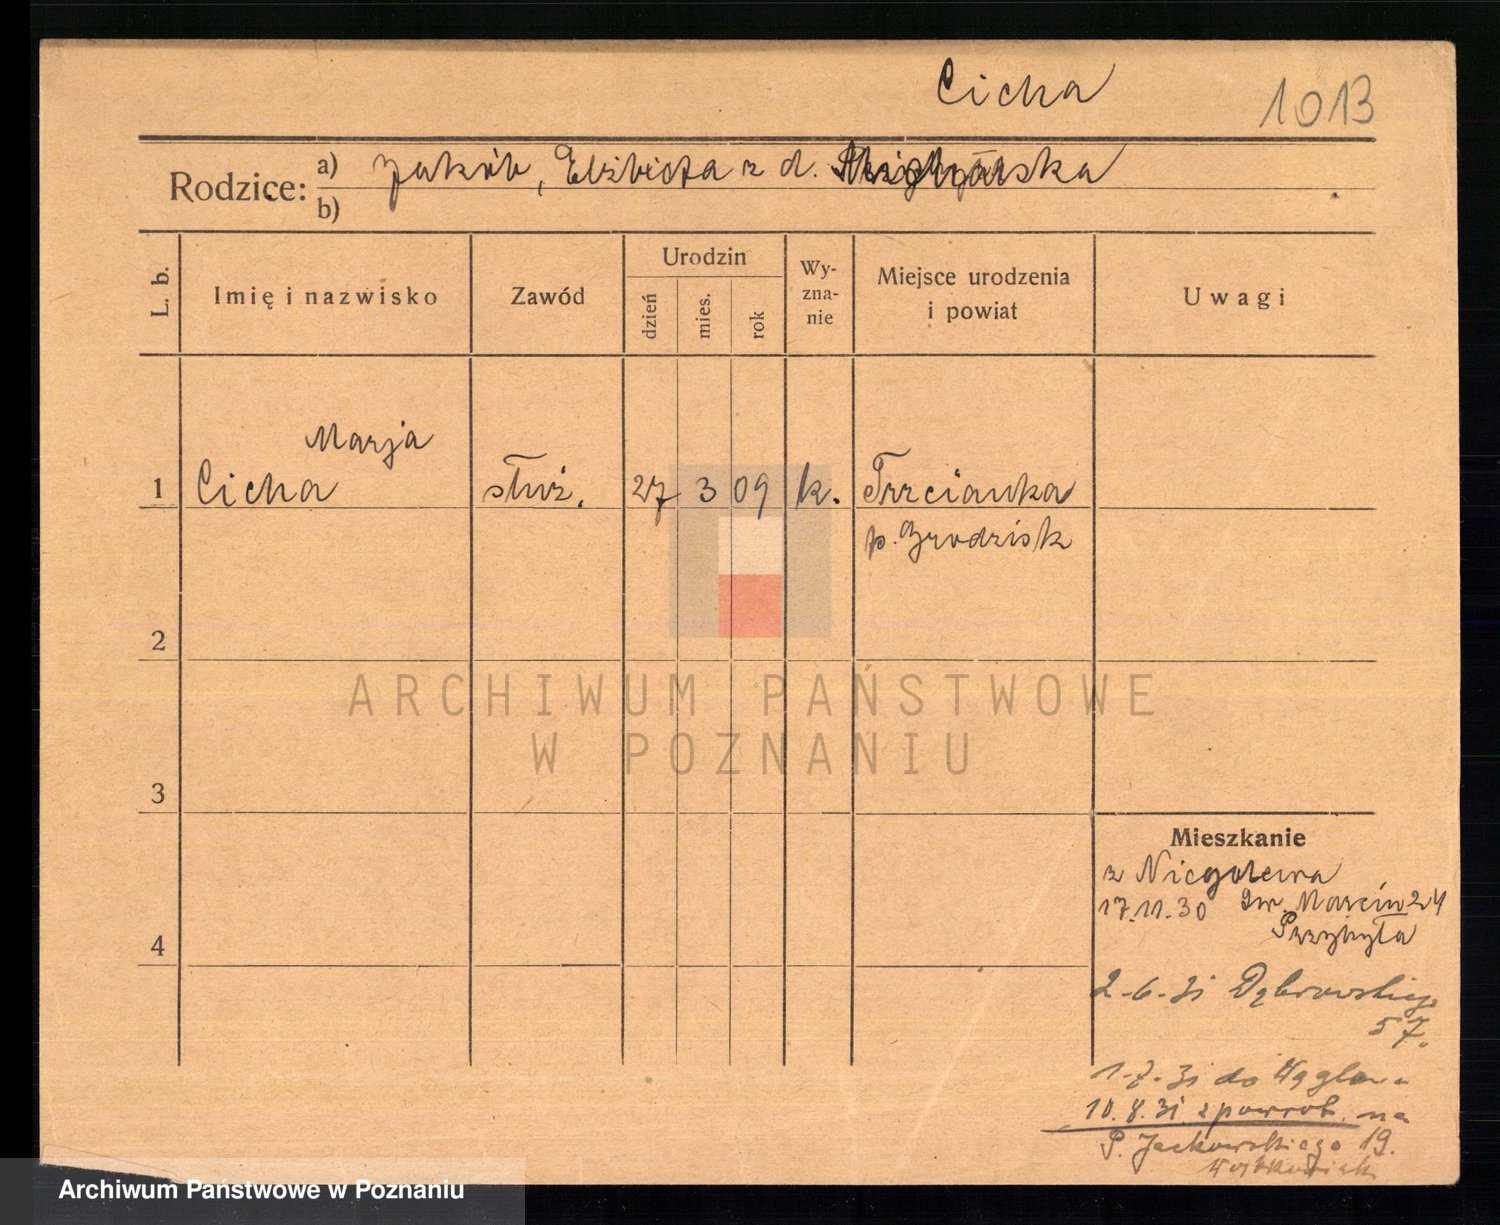 Cicha
1013
Rodzice: a) Jakób, Elżbieta z d.
b)
L. b.
Imię i nazwisko
Zawód
Urodzin
dzień
mies.
rok
Wy-
zna-
nie
Miejsce urodzenia
i powiat
Uwagi
Marja
1 Cicha służ. 27 3 09 k. Trzcianka
p. Grodzisk
2
3
4
ARCHIWUM PAŃSTWOWE
W POZNANIU
Mieszkanie
z Niegolewa
17.11.30 Św. Marcin 24
Przybyła
2-6-31 Dąbrowskiego
57.
1-7-31 do
10.8.31. z powrot. na
P. Jackowskiego 19.
Archiwum Państwowe w Poznaniu